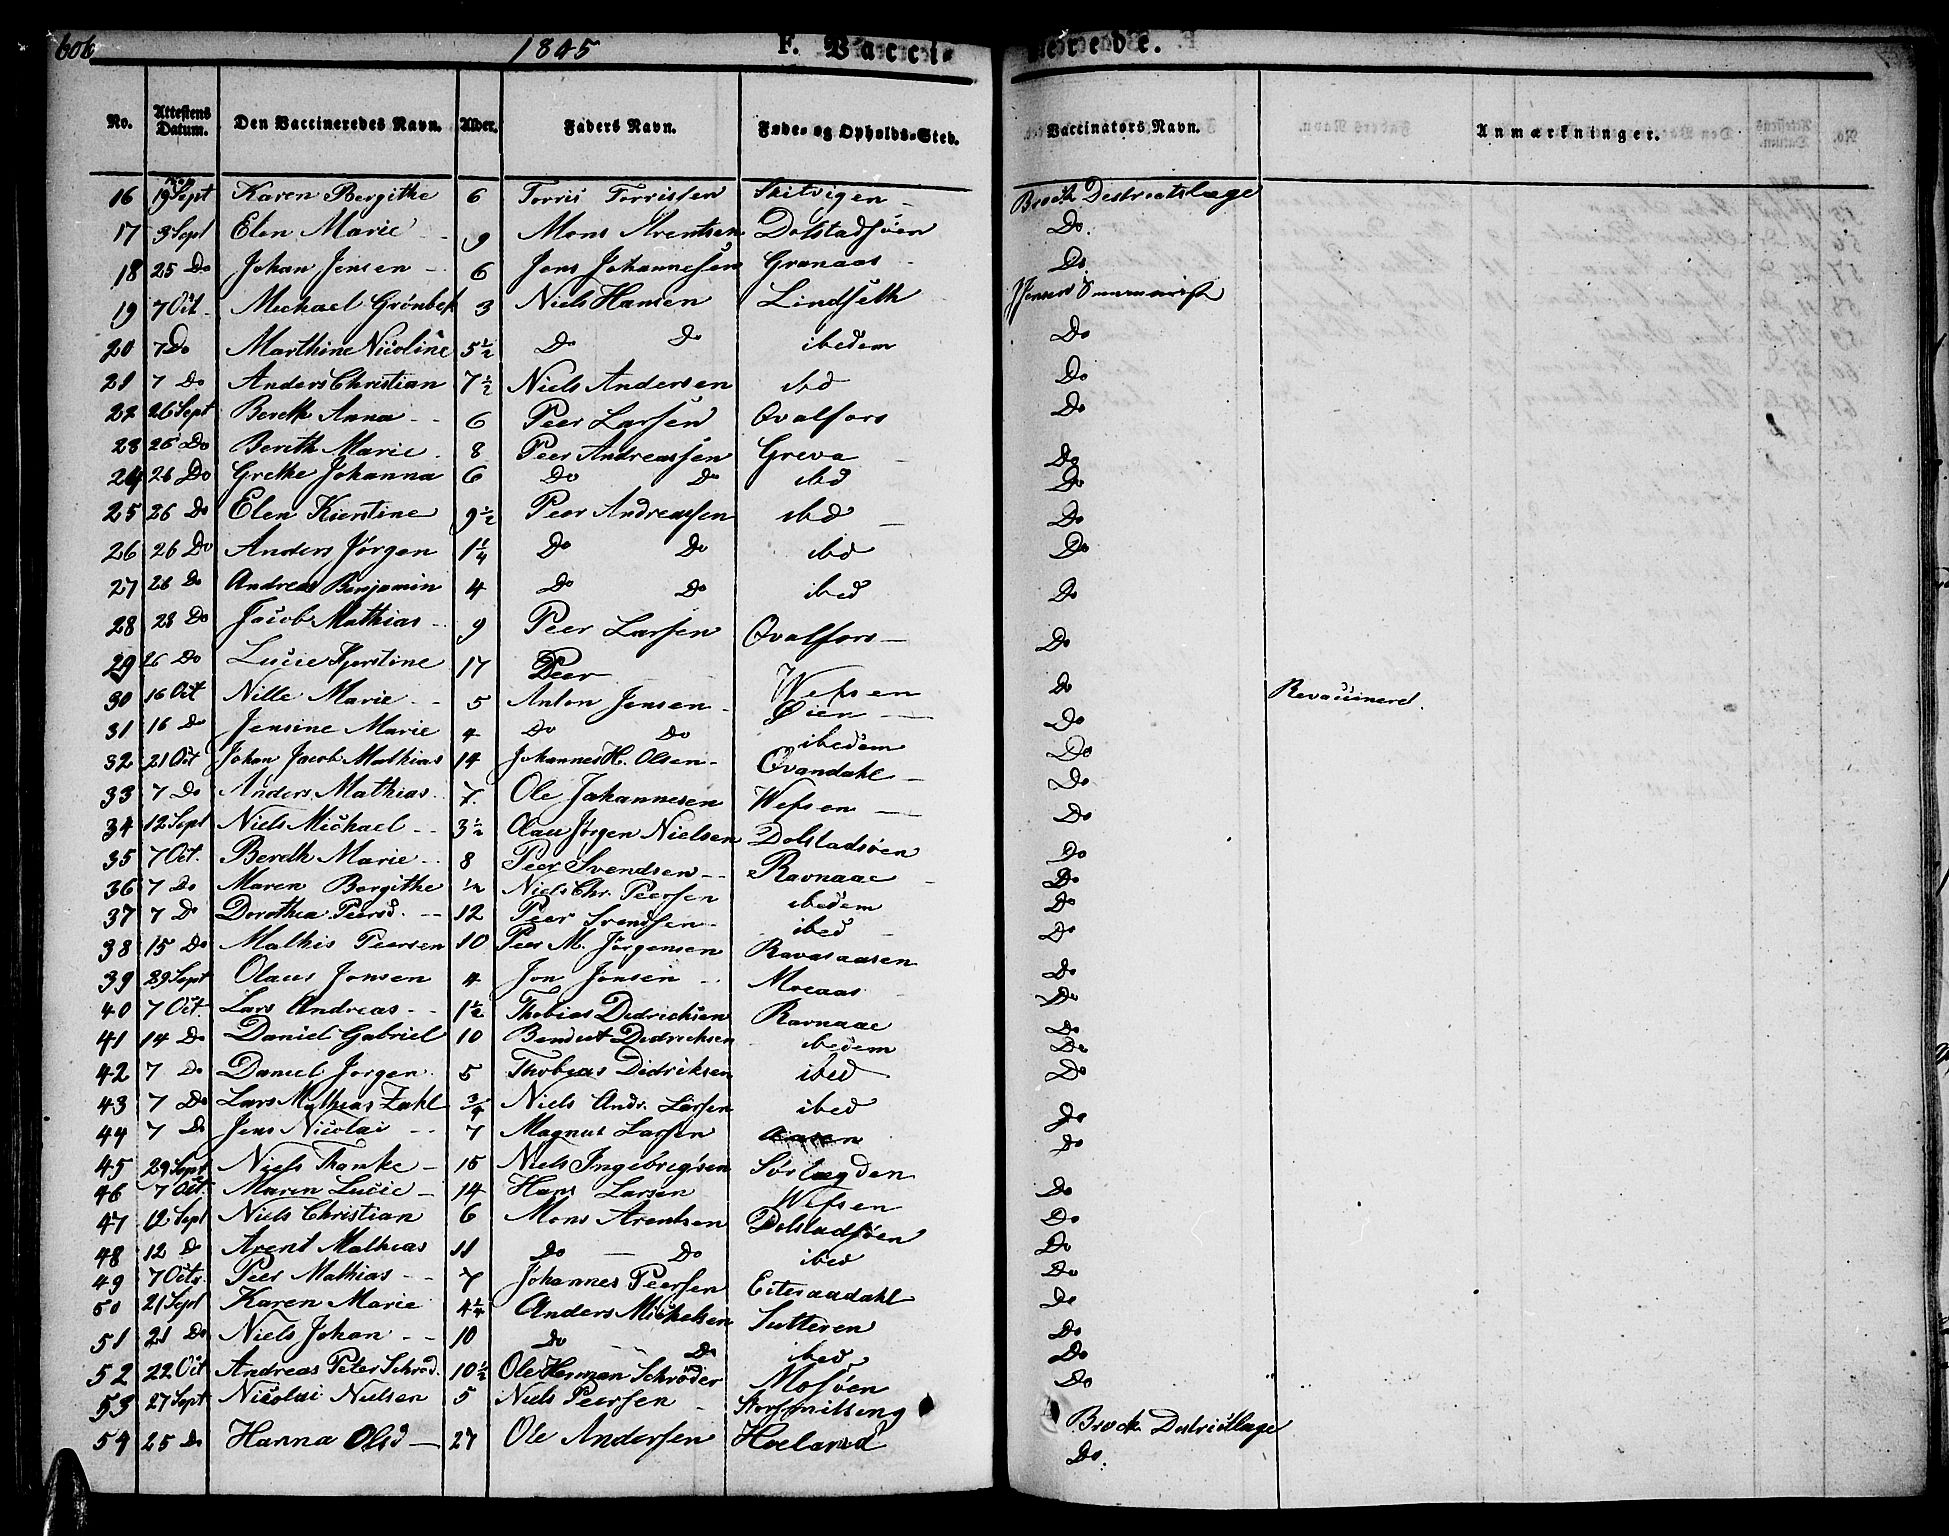 606 1845 F. Vaccinerede.
No. Attestens Datum. Den Vaccineredes Navn. Alder. Faders Navn. Føde- og Opholds-Sted. Vaccinators Navn. Anmærkninger.
16 19 Sept Karen Bergithe 6 Torris Torrissen Skitvigen Brock Destrictslæge
17 3 Sept Elen Marie 9 Mons Arentsen Dolstadsøen Do.
18 25 Do Johan Jensen 6 Jens Johannesen Granaas Do
19 7 Oct. Michael Grønbek 3 Niels Hansen Lindseth J Jensen
20 7 Do Marthine Nicoline 5½ Do Do ibedem Do
21 7 Do Anders Christian 7½ Niels Andersen ibd Do
22 26 Sept Bereth Anna 6 Peer Larsen Qvalfors Do
23 26 Do Bereth Marie 8 Peer Andreassen Greva Do
24 26 Do Grethe Johanna 6 Do Do ibd Do
25 26 Do Elen Kierstine 9½ Peer Andreassen ibd Do
26 26 Do Anders Jørgen 1¼ Do Do ibd Do
27 26 Do Andreas Benjamin 4 Do Do ibed Do
28 28 Do Jacob Mathias 9 Peer Larsen Qvalfors Do
29 26 Do Lucie Kjerstine 17 Peer Wefsen Do Revaccinered.
30 16 Oct Nille Marie 5 Anton Jensen Øien Do
31 16 Do Jensine Marie 4 Do Do ibedem Do
32 21 Oct Johan Jacob Mathias 14 Johannes H. Olsen Qvandahl Do
33 7 Do Anders Mathias 7. Ole Johannesen Wefsen Do
34 12 Sept Niels Michael 3½ Olau Jørgen Nielsen Dolstadsøen Do
35 7 Oct. Bereth Marie 8 Peer Svendsen Ravnaae Do
36 7 Do Maren Bergithe ½ Niels Chr. Peersen ibedem Do
37 7 Do Dorothea Peersd. 12 Peer Svendsen ibed Do
38 15 Do Mathis Peersen 10 Peer M. Jørgensen Ravasaasen Do
39 29 Sept Olaus Jonsen 4 Jon Jonsen Moeaas Do
40 7 Oct. Lars Andreas 1½ Thobias Dedrichsen Ravnaae Do
41 14 Do Daniel Gabriel 10 Bendict Dedrechsen ibedem Do
42 7 Do Daniel Jørgen 5 Thobias Didriksen ibed Do
43 7 Do Lars Mathias Zahl ¾ Niels Andr. Larsen ibed Do
44 7 Do Jens Nicolai 7 Magnus Larsen Aasen Do
45 29 Sept Niels Thanke 15 Niels Ingebregtsen Sørlægden
46 7 Oct. Maren Lucie 14 Hans Larsen Wefsen Do
47 12 Sept Niels Christian 6 Mons Arentsen Dolstadsøen Do
48 12 D Arent Mathias 11 Do Do ibed Do
49 7 Octr. Peer Mathias 7 Johannes Peersen Eiteraadahl Do
50 21 Sept Karen Marie 4¼ Anders Michelsen Sutteren Do
51 21 Do Niels Johan 10 Do Do ibed Do
52 22 Oct Andreas Peter Schrød. 10½ Ole Herman Schrøder Mosøen Do
53 27 Sept Nicolai Nielsen 5 Niels Peersen Do
54 25 Do Hanna Olsd 27 Ole Andersen Hoeland Brock Destrictlæge
Do.